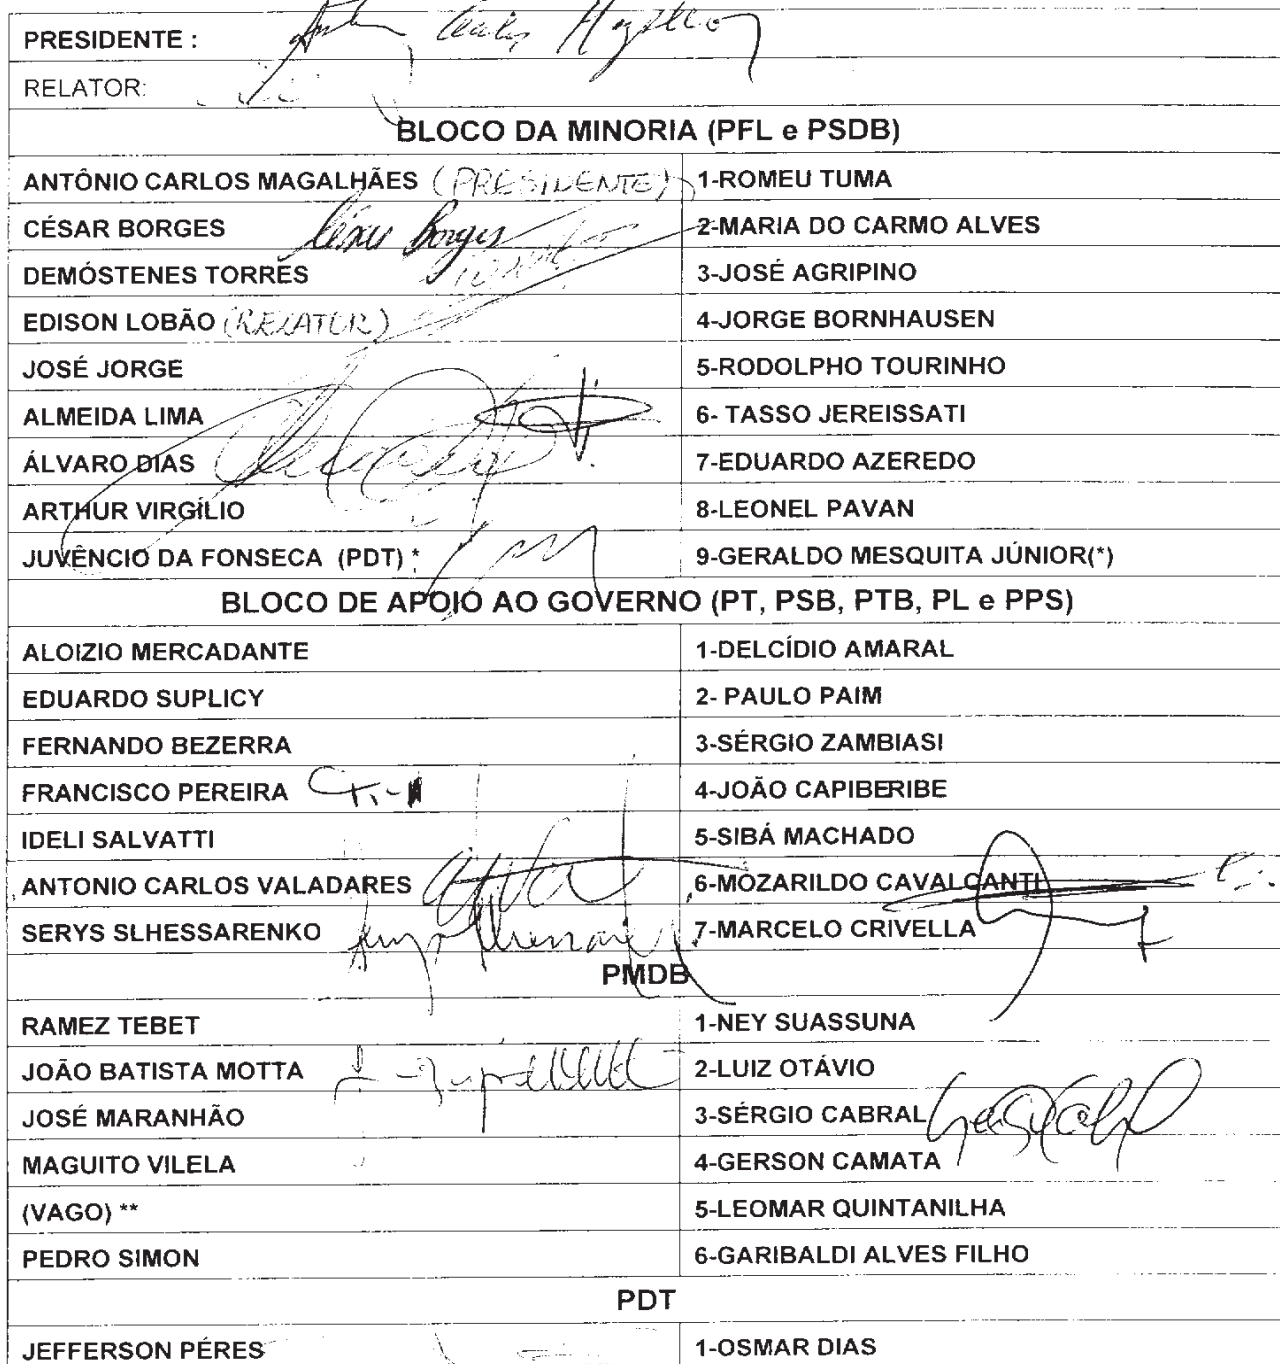 PRESIDENTE :
RELATOR:
BLOCO DA MINORIA (PFL e PSDB)
ANTÔNIO CARLOS MAGALHÃES (PRESIDENTE) 1-ROMEU TUMA
CÉSAR BORGES César Borges 2-MARIA DO CARMO ALVES
DEMÓSTENES TORRES 3-JOSÉ AGRIPINO
EDISON LOBÃO (RELATOR) 4-JORGE BORNHAUSEN
JOSÉ JORGE 5-RODOLPHO TOURINHO
ALMEIDA LIMA 6- TASSO JEREISSATI
ÁLVARO DIAS 7-EDUARDO AZEREDO
ARTHUR VIRGÍLIO 8-LEONEL PAVAN
JUVÊNCIO DA FONSECA (PDT) * 9-GERALDO MESQUITA JÚNIOR(*)
BLOCO DE APOIO AO GOVERNO (PT, PSB, PTB, PL e PPS)
ALOIZIO MERCADANTE 1-DELCÍDIO AMARAL
EDUARDO SUPLICY 2- PAULO PAIM
FERNANDO BEZERRA 3-SÉRGIO ZAMBIASI
FRANCISCO PEREIRA 4-JOÃO CAPIBERIBE
IDELI SALVATTI 5-SIBÁ MACHADO
ANTONIO CARLOS VALADARES 6-MOZARILDO CAVALCANTI
SERYS SLHESSARENKO 7-MARCELO CRIVELLA
PMDB
RAMEZ TEBET 1-NEY SUASSUNA
JOÃO BATISTA MOTTA 2-LUIZ OTÁVIO
JOSÉ MARANHÃO 3-SÉRGIO CABRAL
MAGUITO VILELA 4-GERSON CAMATA
(VAGO) ** 5-LEOMAR QUINTANILHA
PEDRO SIMON 6-GARIBALDI ALVES FILHO
PDT
JEFFERSON PÉRES 1-OSMAR DIAS